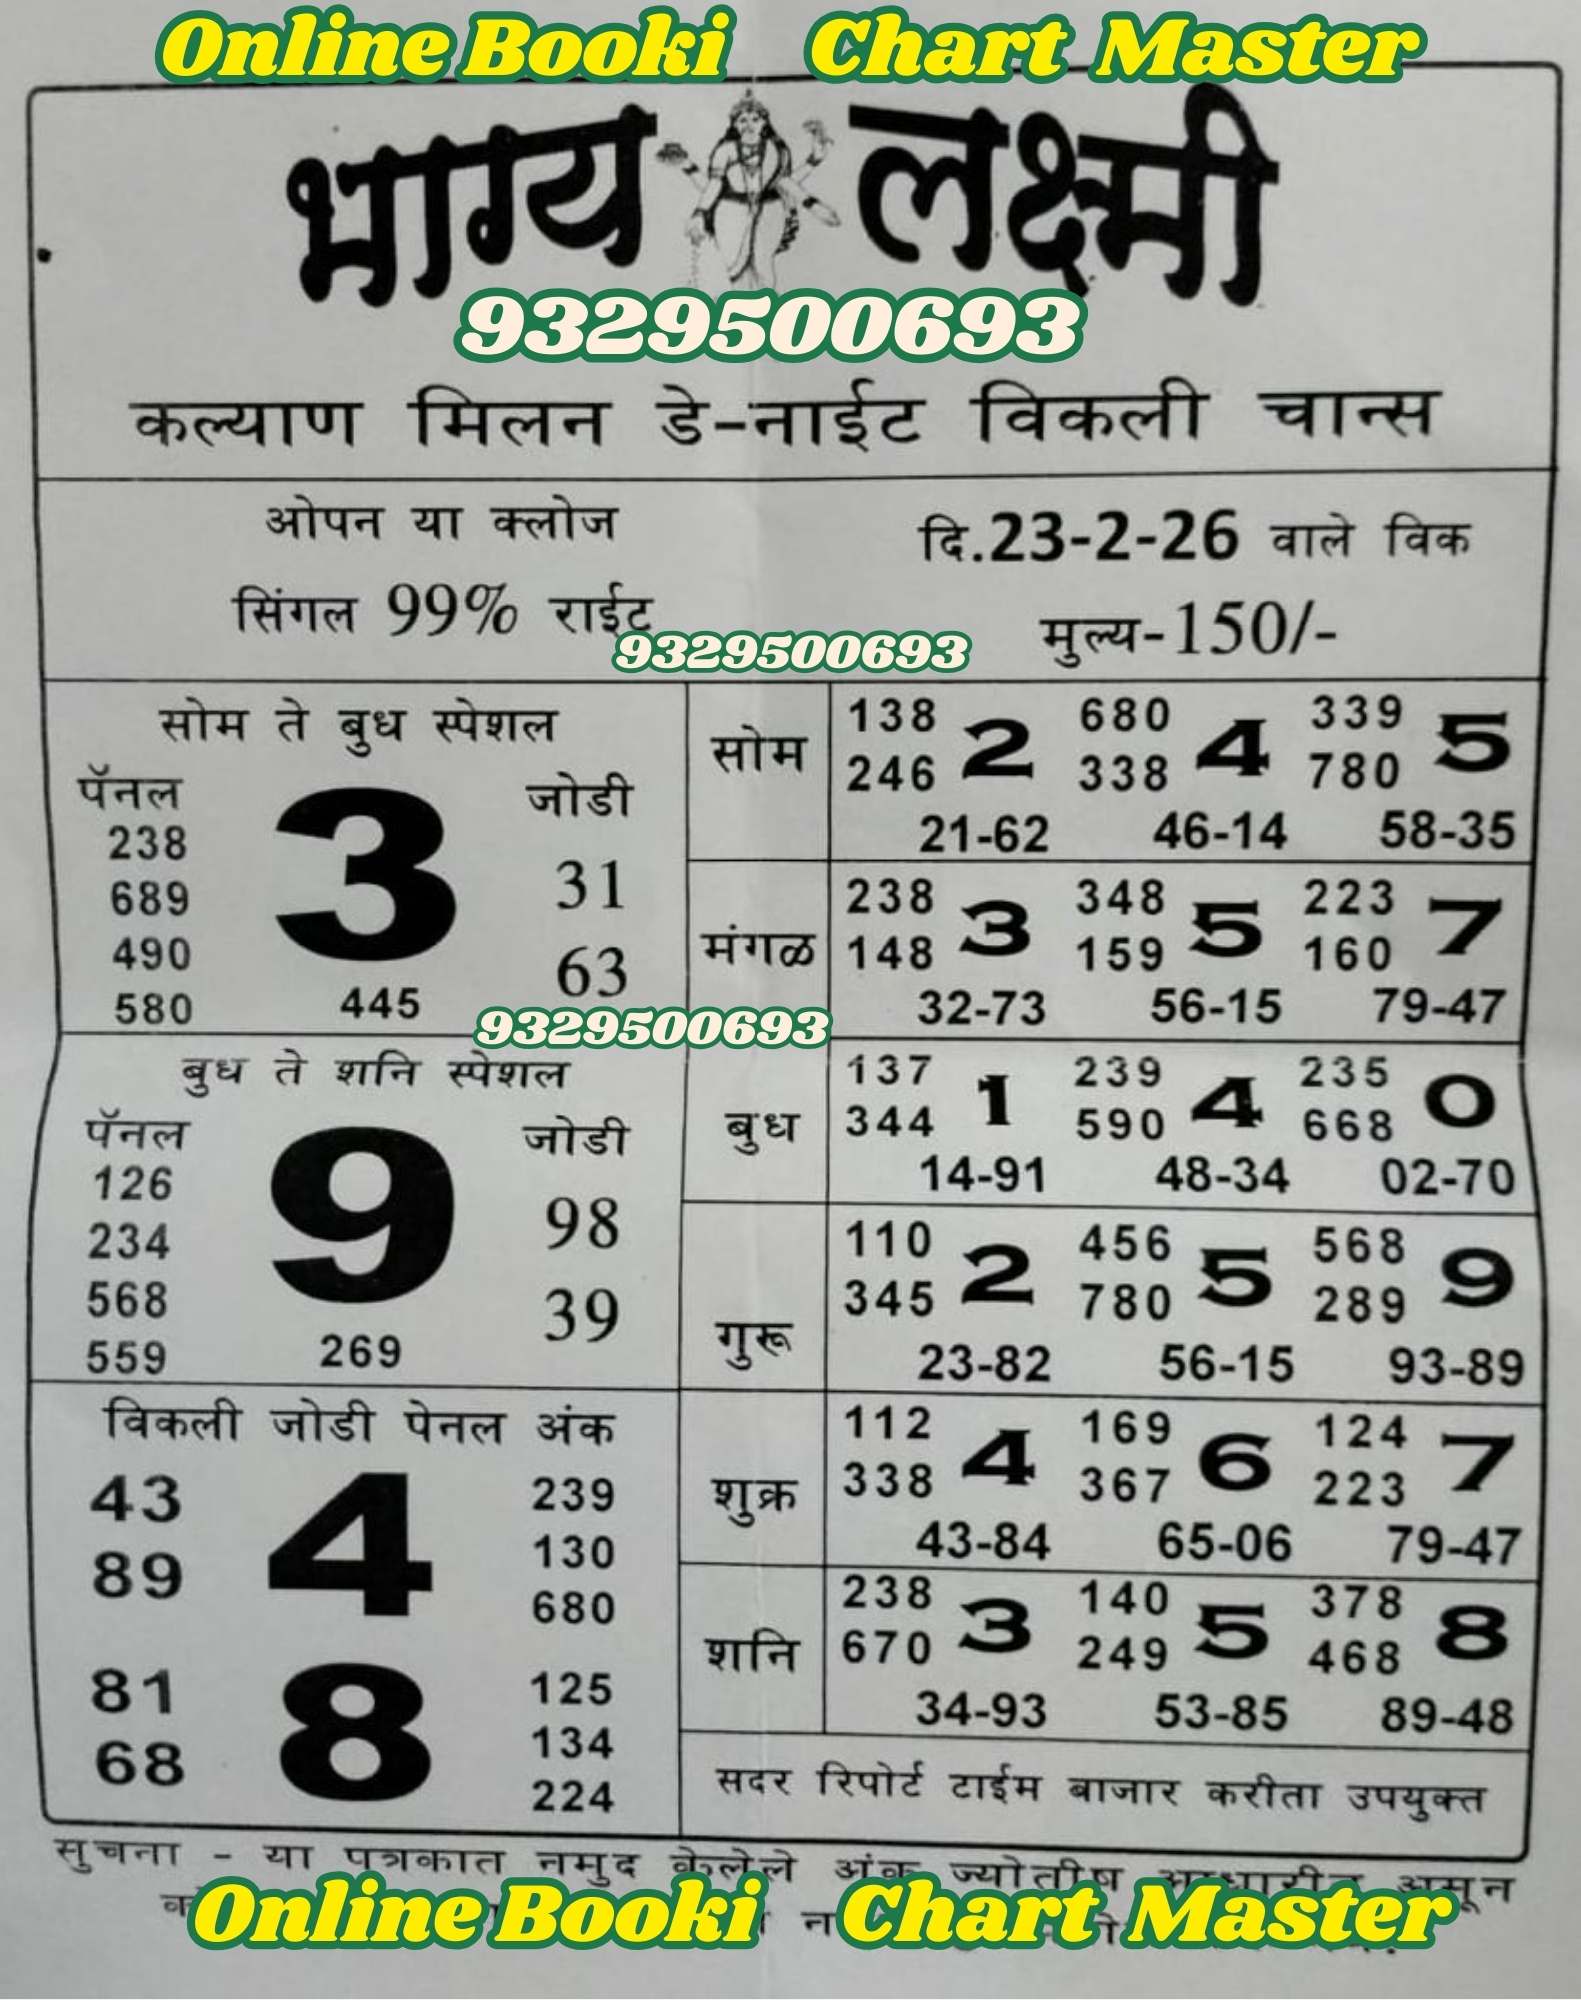 Online Booki Chart Master
भाग्य लक्ष्मी
9329500693
कल्याण मिलन डे-नाईट विकली चान्स
ओपन या क्लोज
सिंगल 99% राईट
दि.23-2-26 वाले विक
मुल्य-150/-
9329500693
सोम ते बुध स्पेशल
पॅनल जोडी
238
689
490
580
3
445
31
63
9329500693
बुध ते शनि स्पेशल
पॅनल जोडी
126
234
568
559
9
269
98
39
विकली जोडी पेनल अंक
43
89
4
239
130
680
81
68
8
125
134
224
सोम
138 680 339
2 4 5
246 338 780
21-62 46-14 58-35
मंगळ
238 348 223
3 5 7
148 159 160
32-73 56-15 79-47
बुध
137 239 235
1 4 0
344 590 668
14-91 48-34 02-70
गुरू
110 456 568
2 5 9
345 780 289
23-82 56-15 93-89
शुक्र
112 169 124
4 6 7
338 367 223
43-84 65-06 79-47
शनि
238 140 378
3 5 8
670 249 468
34-93 53-85 89-48
सदर रिपोर्ट टाईम बाजार करीता उपयुक्त
सुचना - या पत्रकात नमुद केलेले अंक ज्योतीष आधारीत असून
Online Booki Chart Master